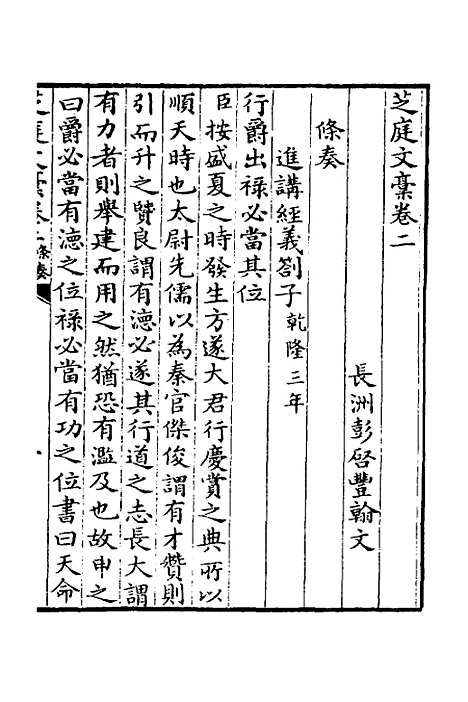 芝庭文稾卷二
長洲彭啓豐翰文
條奏
進講經義劄子乾隆三年
行爵出祿必當其位
臣按盛夏之時發生方遂大君行慶賞之典所以
順天時也太尉先儒以為秦官傑俊謂有才贊則
引而升之贊良謂有德必遂其行道之志長大謂
有力者則舉建而用之然猶恐有濫及也故申之
曰爵必當有德之位祿必當有功之位書曰天命
芝庭文稾卷二條奏
一